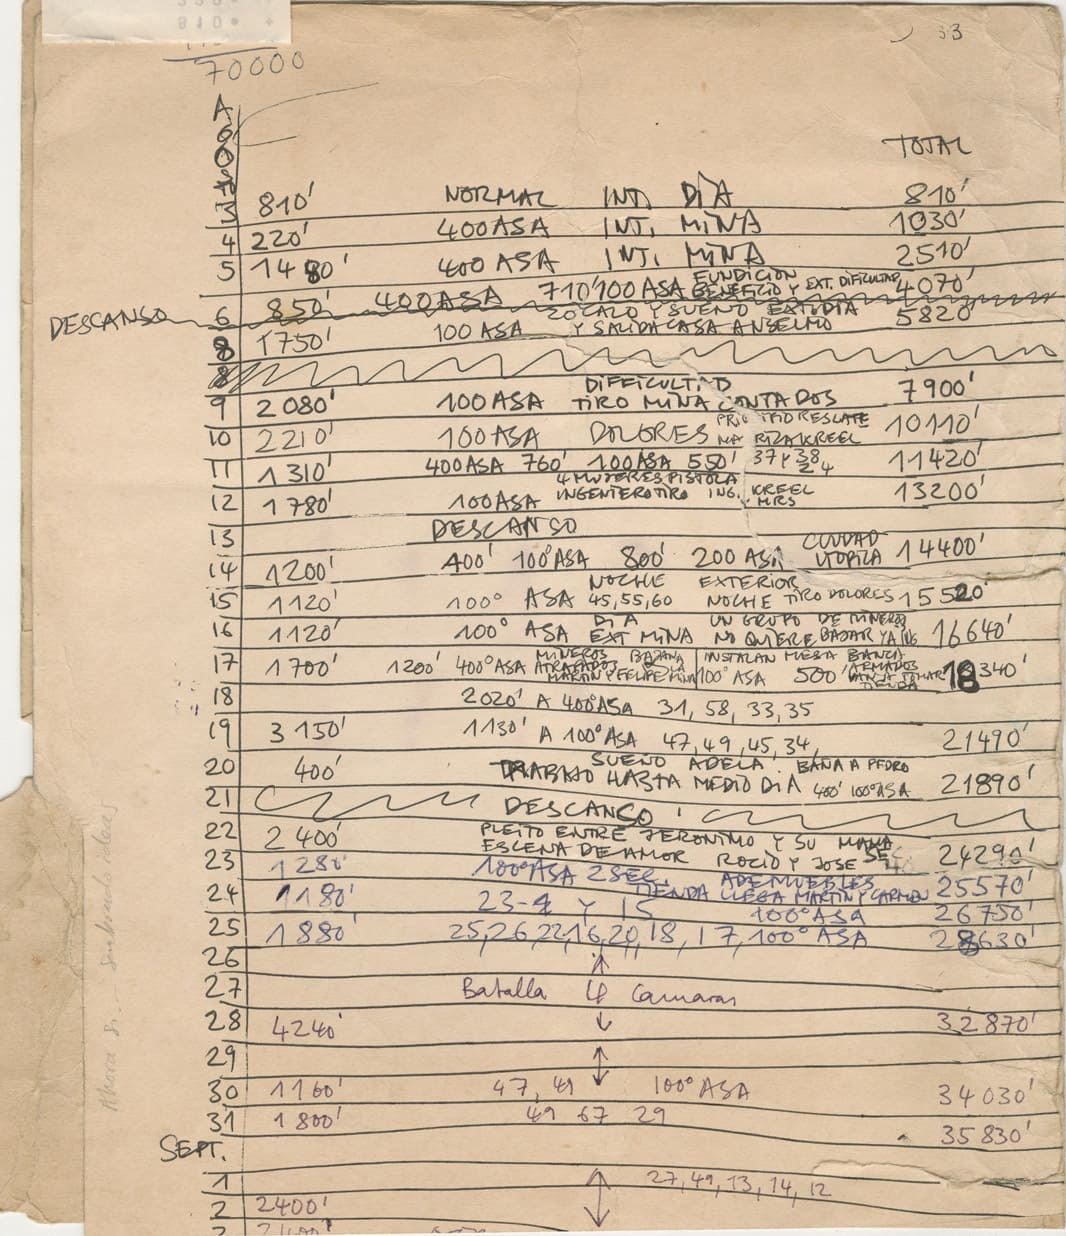 810 +
33
70000
AGOSTO
TOTAL
3 810' NORMAL INT. DIA 810'
4 220' 400 ASA INT. MINA 1030'
5 1480' 400 ASA INT. MINA 2510'
FUNDICION
DESCANSO 6 850' 400 ASA 710' 100 ASA BENEFICIO Y EXT. DIFICULTAD 4070'
ZOCALO Y SUEÑO EXT DIA
8 1750' 100 ASA Y SALIDA CASA ANSELMO 5820'
8
DIFFICULTAD
9 2080' 100 ASA TIRO MINA CONTADOS 7900'
10 2210' 100 ASA DOLORES RESCATE KREEL 10110'
11 1310' 400 ASA 760' 100 ASA 550' 37 Y 38 11420'
4 MUJERES PISTOLA
12 1780' 100 ASA INGENIERO TIRO ING. KREEL MRS 13200'
13 DESCANSO
14 1200' 400' 100° ASA 800' 200 ASA CIUDAD UTOPIA 14400'
NOCHE EXTERIOR
15 1120' 100° ASA 45, 55, 60 NOCHE TIRO DOLORES 15520'
DIA UN GRUPO DE MINEROS
16 1120' 100° ASA EXT MINA NO QUIERE BAJAR YA 16640'
MINEROS INSTALAN MESA BANCA
17 1700' 1200' 400° ASA ATRAPADOS MARTIN Y FELIPE 100° ASA 500' ARMADOS TOMAR TIENDA 18340'
18 2020' A 400° ASA 31, 58, 33, 35
19 3150' 1130' A 100° ASA 47, 49, 45, 34, 21490'
SUEÑO ADELA BAÑA A PEDRO
20 400' TRABAJO HASTA MEDIO DIA 400' 100° ASA 21890'
21 DESCANSO
PLEITO ENTRE JERONIMO Y SU MAMA
22 2400' ESCENA DE AMOR ROCIO Y JOSE 24290'
23 1280' 100° ASA 2 SEC. ADEMUEBLES 25570'
TIENDA LLEGA MARTIN Y CARMEN
24 1180' 23-4 Y 15 100° ASA 26750'
25 1880' 25, 26, 22, 16, 20, 18, 17, 100° ASA 28630'
26
27 Batalla 4 Camaras
28 4240' 32870'
29
30 1160' 47, 49 100° ASA 34030'
31 1800' 49 67 29 35830'
SEPT.
1 27, 49, 13, 14, 12
2 2400'
Ahora si.- sembrado ideas